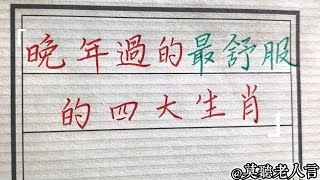 晚年過的最舒服
的四大生肖」
@莫聽老人言